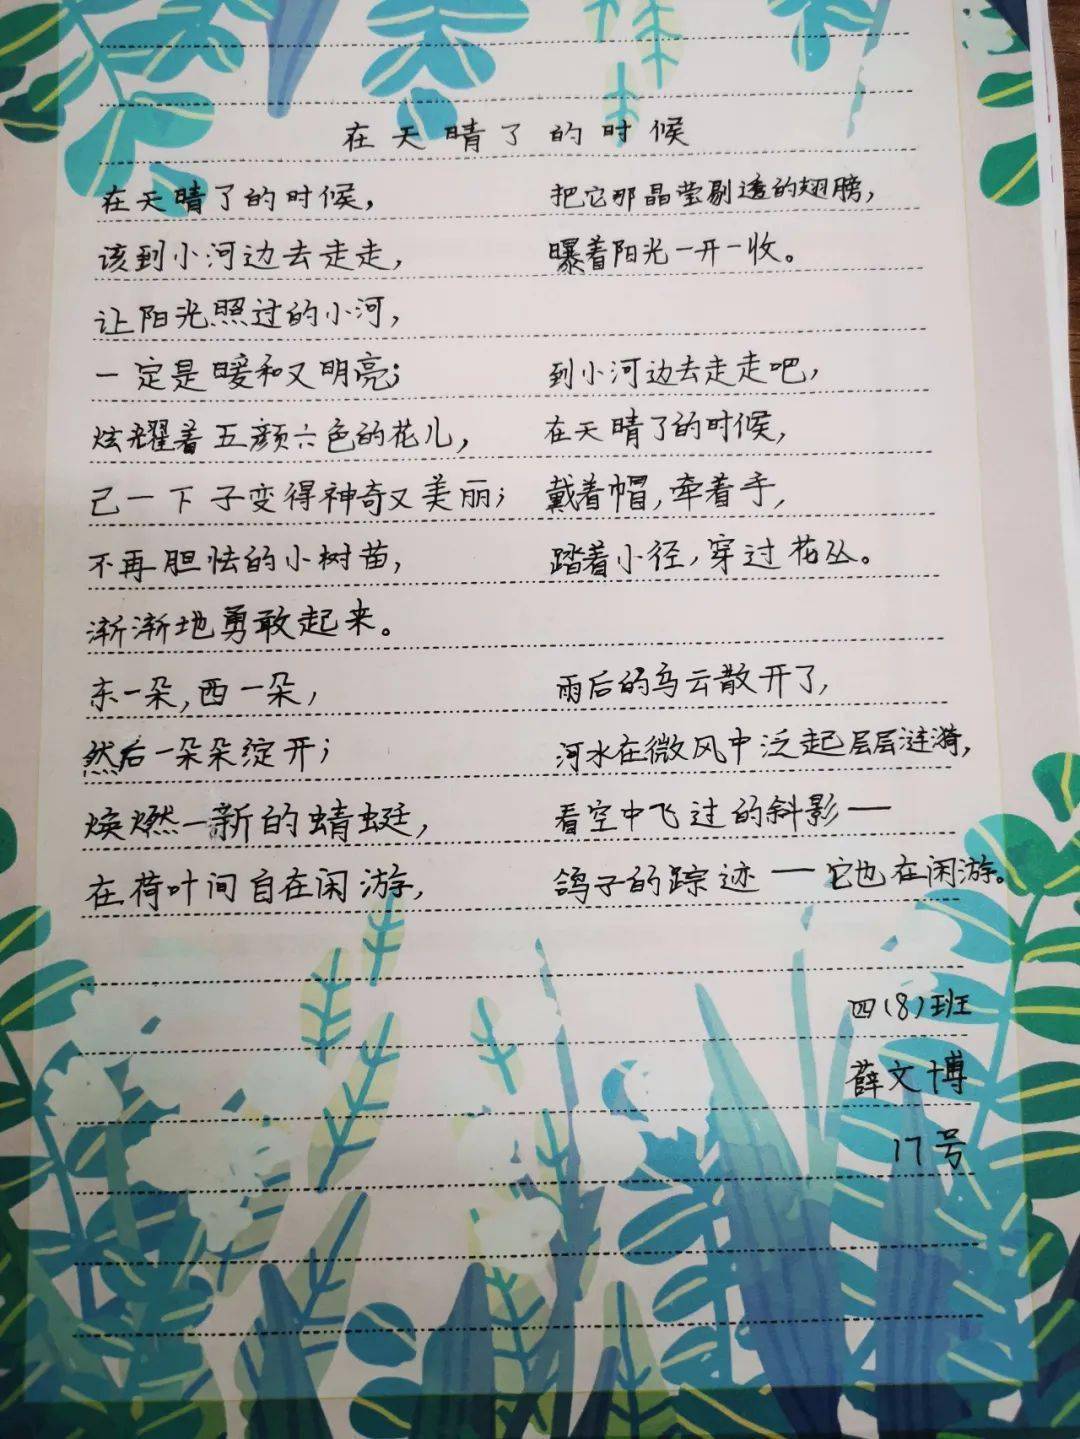 在天晴了的时候
在天晴了的时候，
该到小河边去走走，
让阳光照过的小河，
一定是暖和又明亮；
炫耀着五颜六色的花儿，
己一下子变得神奇又美丽；
不再胆怯的小树苗，
渐渐地勇敢起来。
东一朵，西一朵，
然后一朵朵绽开；
焕燃一新的蜻蜓，
在荷叶间自在闲游，
把它那晶莹剔透的翅膀，
曝着阳光一开一收。
到小河边去走走吧，
在天晴了的时候，
戴着帽，牵着手，
踏着小径，穿过花丛。
雨后的乌云散开了，
河水在微风中泛起层层涟漪，
看空中飞过的斜影一
鸽子的踪迹一它也在闲游。
四（8）班
薛文博
17号